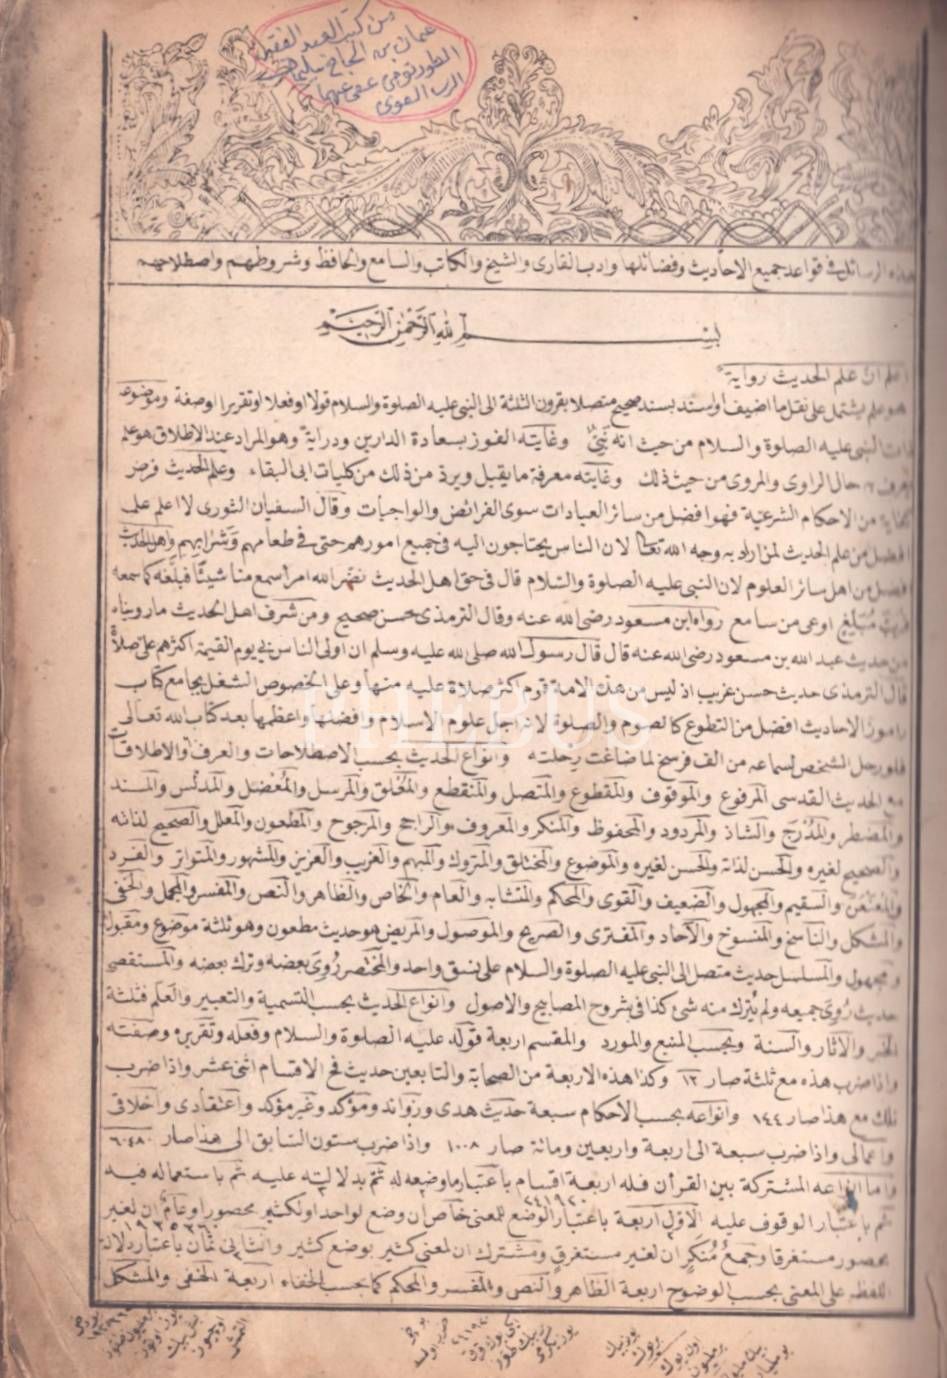 من كتب العبد الفقير
عثمان بن الحاج سليمان
الطورنومى عفى عنهما
الرب القوى
هذه الرسائل فى قواعد جميع الاحاديث وفضائلها وادب القارى والشيخ والكاتب والسامع والحافظ وشروطهم واصطلاحهم
بسم الله الرحمن الرحيم
اعلم ان علم الحديث رواية
هو علم يشتمل على نقل ما اضيف او اسند بسند صحيح متصلا بقرون الثلثة الى النبى عليه الصلوة والسلام قولا او فعلا او تقريرا او صفة وموضوعه
ذات النبى عليه الصلوة والسلام من حيث انه نبىٌ وغايته الفوز بسعادة الدارين ودراية وهو المراد عند الاطلاق هو علم
يعرف به حال الراوى والمروى من حيث ذلك وغايته معرفة ما يقبل ويرد من ذلك من كليات ابى البقاء وعلم الحديث فرض
كفاية من الاحكام الشرعية فهو افضل من سائر العبادات سوى الفرائض والواجبات وقال السفيان الثورى لا اعلم علما
افضل من علم الحديث لمن اراد به وجه الله تعالى لان الناس يحتاجون اليه فى جميع امورهم حتى فى طعامهم وشرابهم واهل الحديث
افضل من اهل سائر العلوم لان النبى عليه الصلوة والسلام قال فى حق اهل الحديث نضر الله امرأ سمع منا شيئا فبلغه كما سمعه
فرب مُبَلَّغٍ اوعى من سامع رواه ابن مسعود رضى الله عنه وقال الترمذى حسن صحيح ومن شرف اهل الحديث ما رويناه
من حديث عبد الله بن مسعود رضى الله عنه قال قال رسول الله صلى الله عليه وسلم ان اولى الناس بى يوم القيمة اكثرهم على صلاةً
قال الترمذى حديث حسن غريب اذ ليس من هذه الامة قوم اكثر صلاة عليه منها وعلى الخصوص الشغل بجامع كتاب
راموز الاحاديث افضل من التطوع كالصوم والصلوة لانه اجل علوم الاسلام وافضلها واعظمها بعد كتاب الله تعالى
فلو رحل الشخص لسماعه من الف فرسخ لما ضاعت رحلته وانواع الحديث بحسب الاصطلاحات والعرف والاطلاقات
مع الحديث القدسى المرفوع والموقوف والمقطوع والمتصل والمنقطع والمعلق والمرسل والمعضل والمدلس والمسند
والمضطر والمدرج والشاذ والمردود والمحفوظ والمنكر والمعروف والراجح والمرجوح والمطعون والمعلل والصحيح لذاته
والصحيح لغيره والحسن لذاته والحسن لغيره والموضوع والمختلق والمتروك والمبهم والغريب والعزيز والمشهور والمتواتر والفرد
والمعنعن والسقيم والمجهول والضعيف والقوى والمحكم والمتشابه والعام والخاص والظاهر والنص والمفسر والمجمل والخفى
والمشكل والناسخ والمنسوخ والآحاد والمفترى والصريح والموصول والمريض هو حديث مطعون وهو ثلثة موضوع ومقبول
ومجهول والمسلسل حديث متصل الى النبى عليه الصلوة والسلام على نسق واحد والمختصر رُوِىَ بعضه وترك بعضه والمستقصى
حديث رُوِىَ جميعه ولم يُترك منه شئ كذا فى شروح المصابيح والاصول وانواع الحديث بحسب التسمية والتعبير والعلم فثلثة
الخبر والآثار والسنة وبحسب المنبع والمورد والمقسم اربعة قوله عليه الصلوة والسلام وفعله وتقريره وصفته
واذا ضرب هذه مع ثلثة صار ١٢ وكذا هذه الاربعة من الصحابة والتابعين حديث فح الاقسام اثنى عشر واذا ضرب
تلك مع هذا صار ١٤٤ وانواعه بحسب الاحكام سبعة حديث هدى وزوائد ومؤكد وغير مؤكد واعتقادى واخلاقى
واعمالى واذا ضرب سبعة الى اربعة واربعين ومائة صار ١٠٠٨ واذا ضرب ستون السابق الى هذا صار ٦٠٤٨٠
واما انواعه المشتركة بين القرآن فله اربعة اقسام باعتبار وضعه له ثم بدلالته عليه ثم باستعماله فيه
ثم باعتبار الوقوف عليه الاول اربعة باعتبار الوضع للمعنى خاص ان وضع لواحد او لكثير محصور وعام ان لغير
٢٤١٩٢٠
محصور مستغرقا وجمعٌ مُنَكَّر ان لغير مستغرق ومشترك ان لمعنى كثير بوضع كثير والثانى ثمان باعتبار دلالة
١٩٣٥٣٦٠
اللفظ على المعنى بحسب الوضوح اربعة الظاهر والنص والمفسر والمحكم كما بحسب الخفاء اربعة الخفى والمشكل